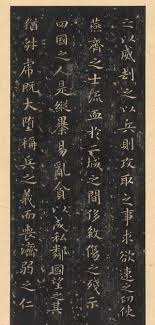 之以威劫之以兵則攻取之事求欲速之功使
燕齊之士流血於二城之間侈殺傷之殘示
四國之人是縱暴易亂貪以成私鄰國望之其
猶豺虎既大墮稱兵之義而喪濟弱之仁